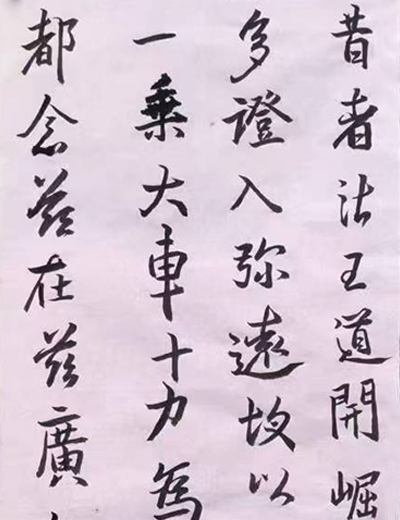 昔者法王道開崛
多證入弥遠故以
一乗大車十力為
都念茲在茲廣